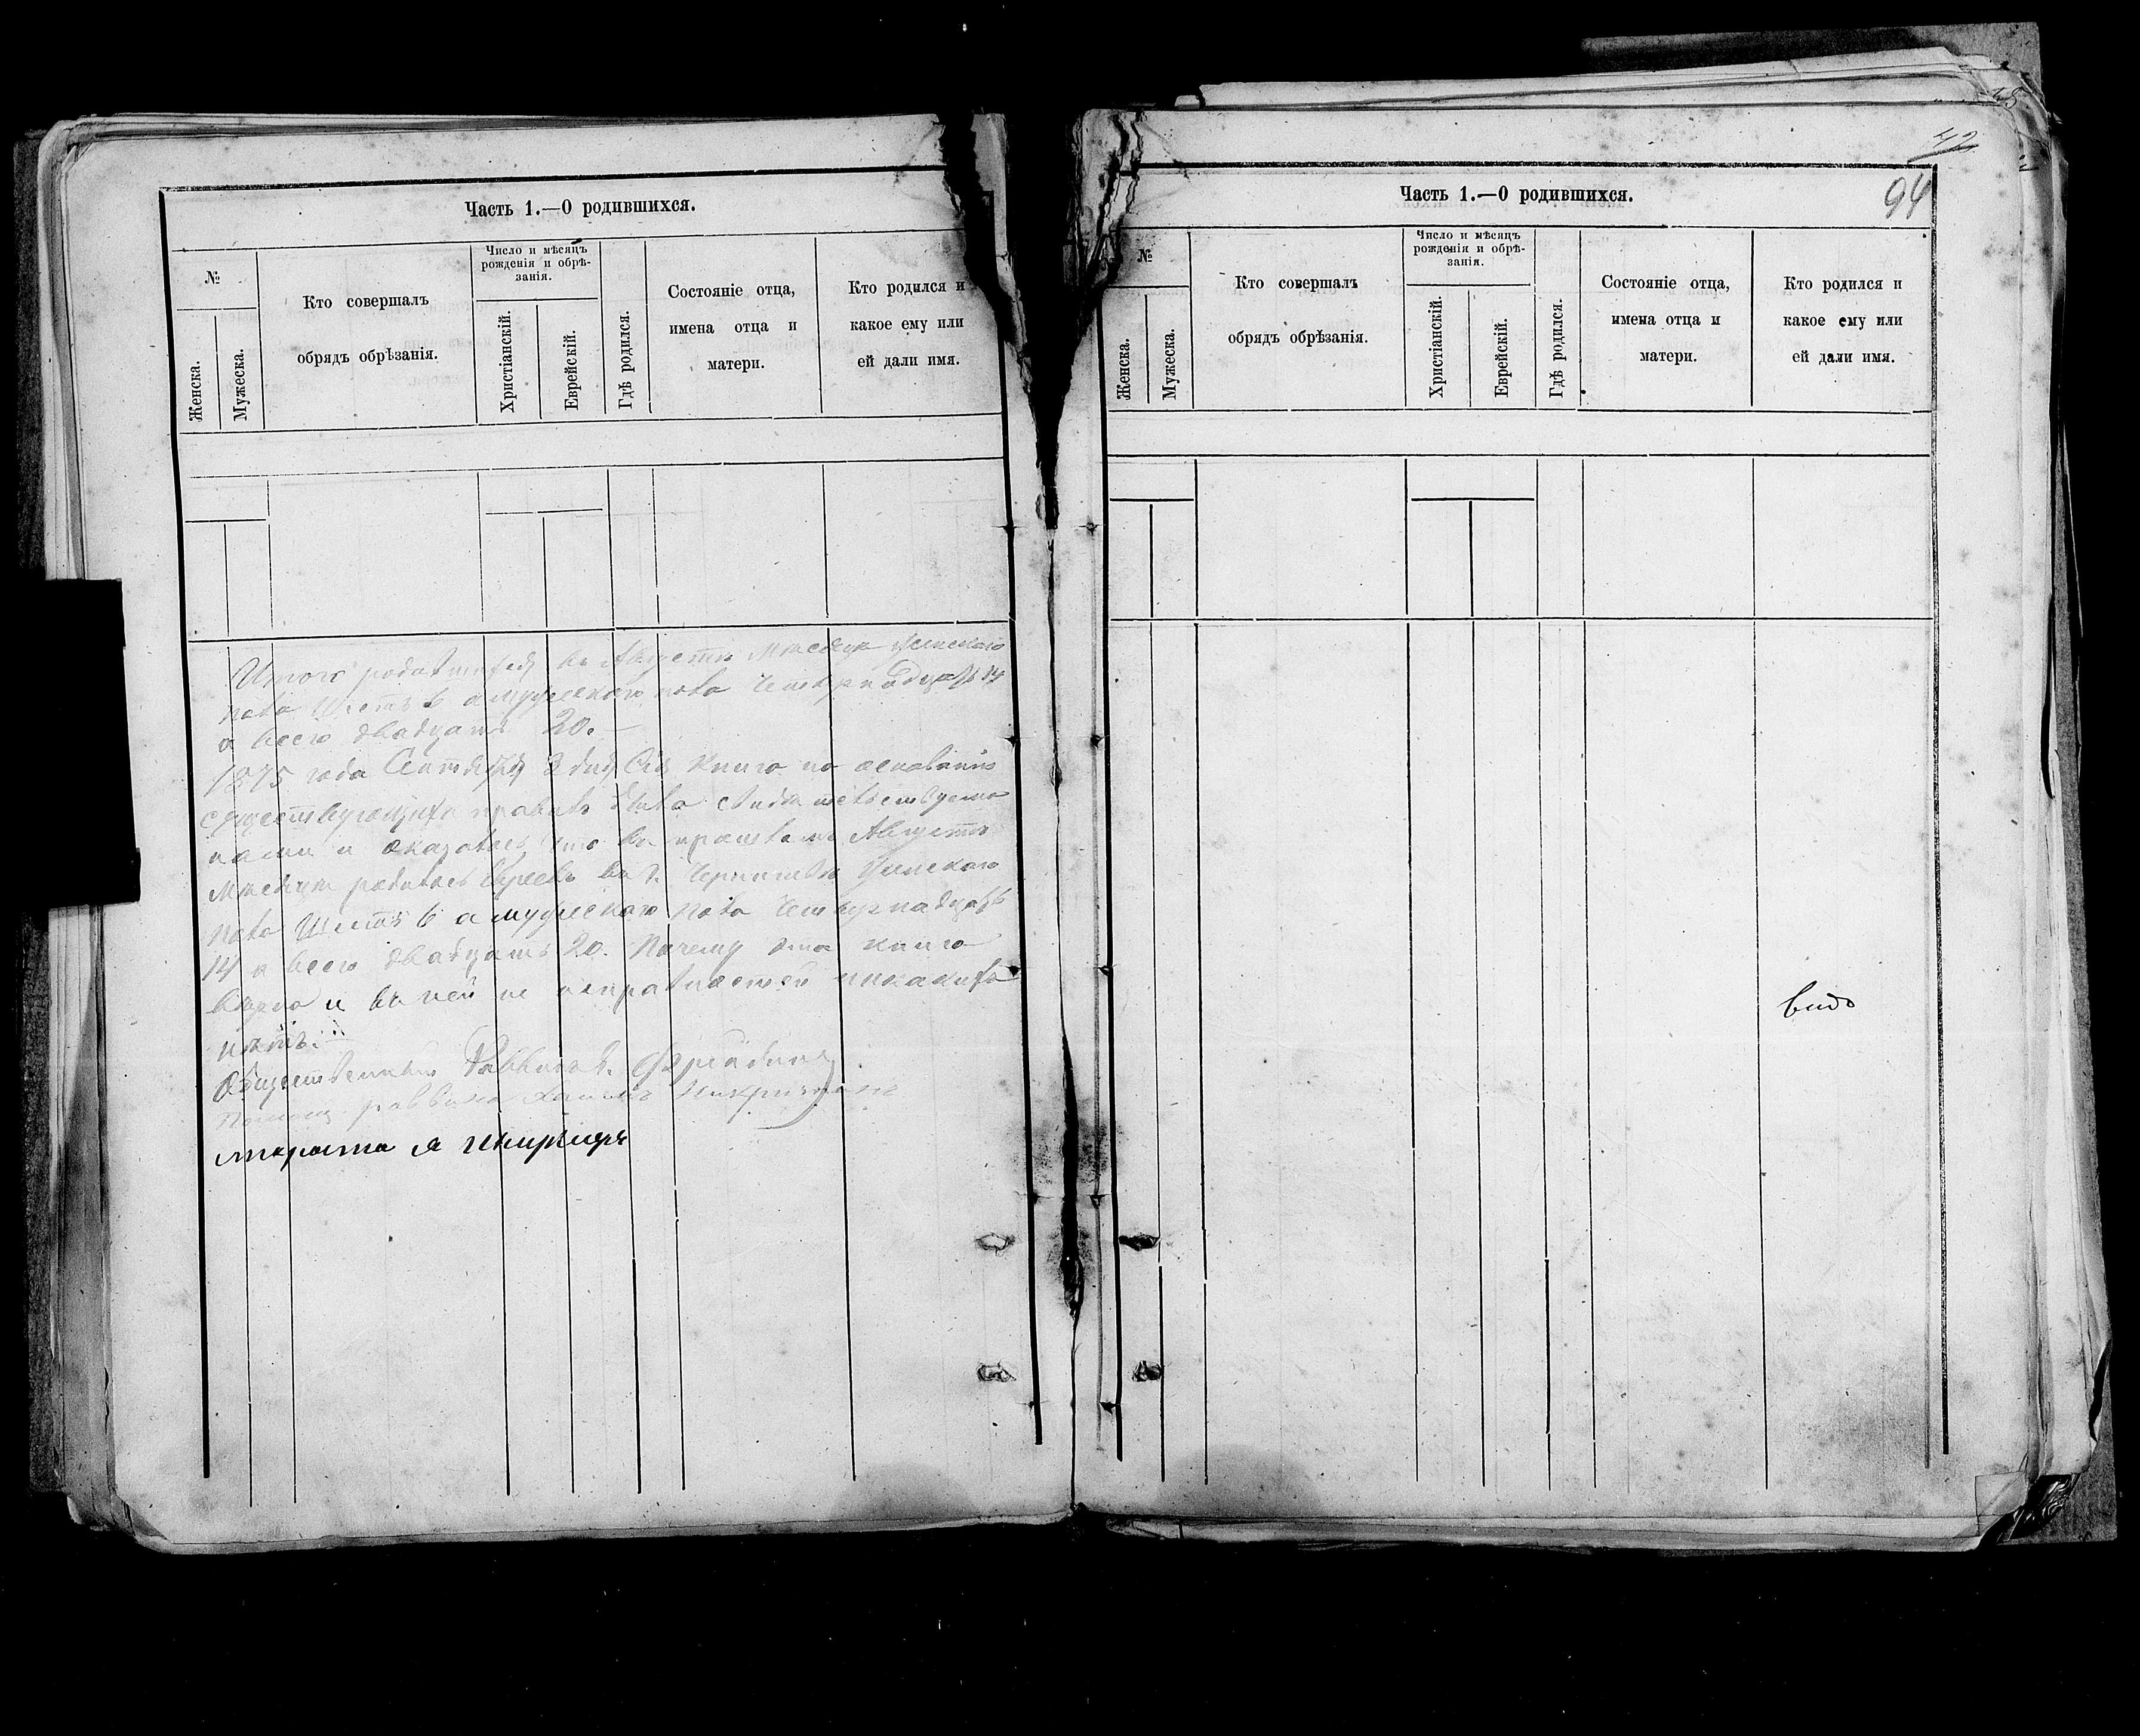 Часть 1.—О родившихся.
№
Женска.
Мужеска.
Кто совершалъ
обрядъ обрѣзанія.
Число и мѣсяцъ
рожденія и обрѣ-
занія.
Христіанскій.
Еврейскій.
Гдѣ родился.
Состояніе отца,
имена отца и
матери.
Кто родился и
какое ему или
ей дали имя.
Итого родившихся въ Августѣ месяце женскаго
пола Шесть 6 а мужескаго пола Четырнадцать 14
а всего двадцать 20.—
1875 года Сентября 2 дня Сія Книга по основанію
существующихъ правилъ была свидетельствуема
нами и оказалось что въ прошломъ Августѣ
Месяце родилось Евреевъ въ г. женскаго
пола Шесть 6 а мужескаго пола Четырнадцать
14 а всего двадцать 20. Почему эта книга
верна и въ ней не исправностей никакихъ
нѣтъ.
Общественный Раввинъ
Помощ. раввина
староста
42
94
Часть 1.—О родившихся.
№
Женска.
Мужеска.
Кто совершалъ
обрядъ обрѣзанія.
Число и мѣсяцъ
рожденія и обрѣ-
занія.
Христіанскій.
Еврейскій.
Гдѣ родился.
Состояніе отца,
имена отца и
матери.
Кто родился и
какое ему или
ей дали имя.